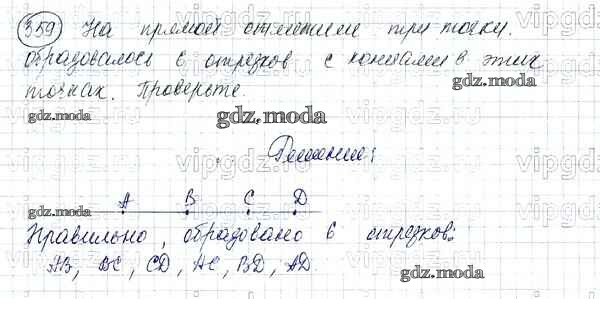 359 На прямой отметили три точки.
Образовалось 6 отрезков с концами в этих
точках. Проверьте.
gdz.moda
gdz.moda
Решение:
A B C D
gdz.moda
Правильно, образовано 6 отрезков:
AB, BC, CD, AC, BD, AD.
gdz.moda